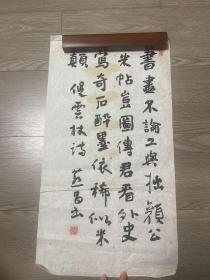 書畫不論工與拙顏公
失帖豈圖傳君看外史
鶯奇石醉墨依稀似米
顛 倪雲林詩 燕昌书